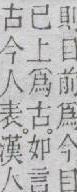 則目前爲今目
已上爲古如言
古今人表漢人